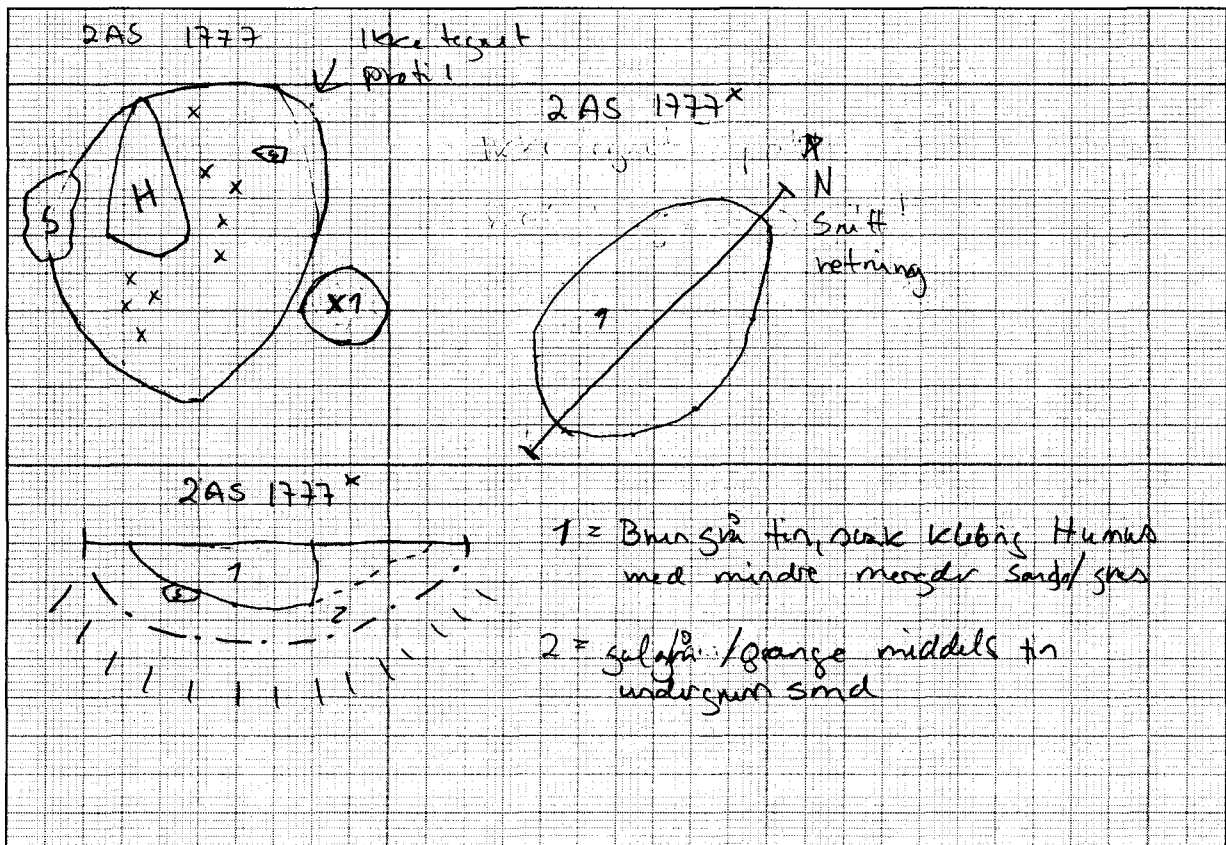 2AS 1777
Ikke tegnet
profil
H
S
x1
2AS 1777x
N
Snitt
retning
1
2AS 1777x
1
2
1 = Brungrå fin, svak klebrig Humus
med mindre mengder sand/grus
2 = gulgrå/orange middels fin
undergrun sand